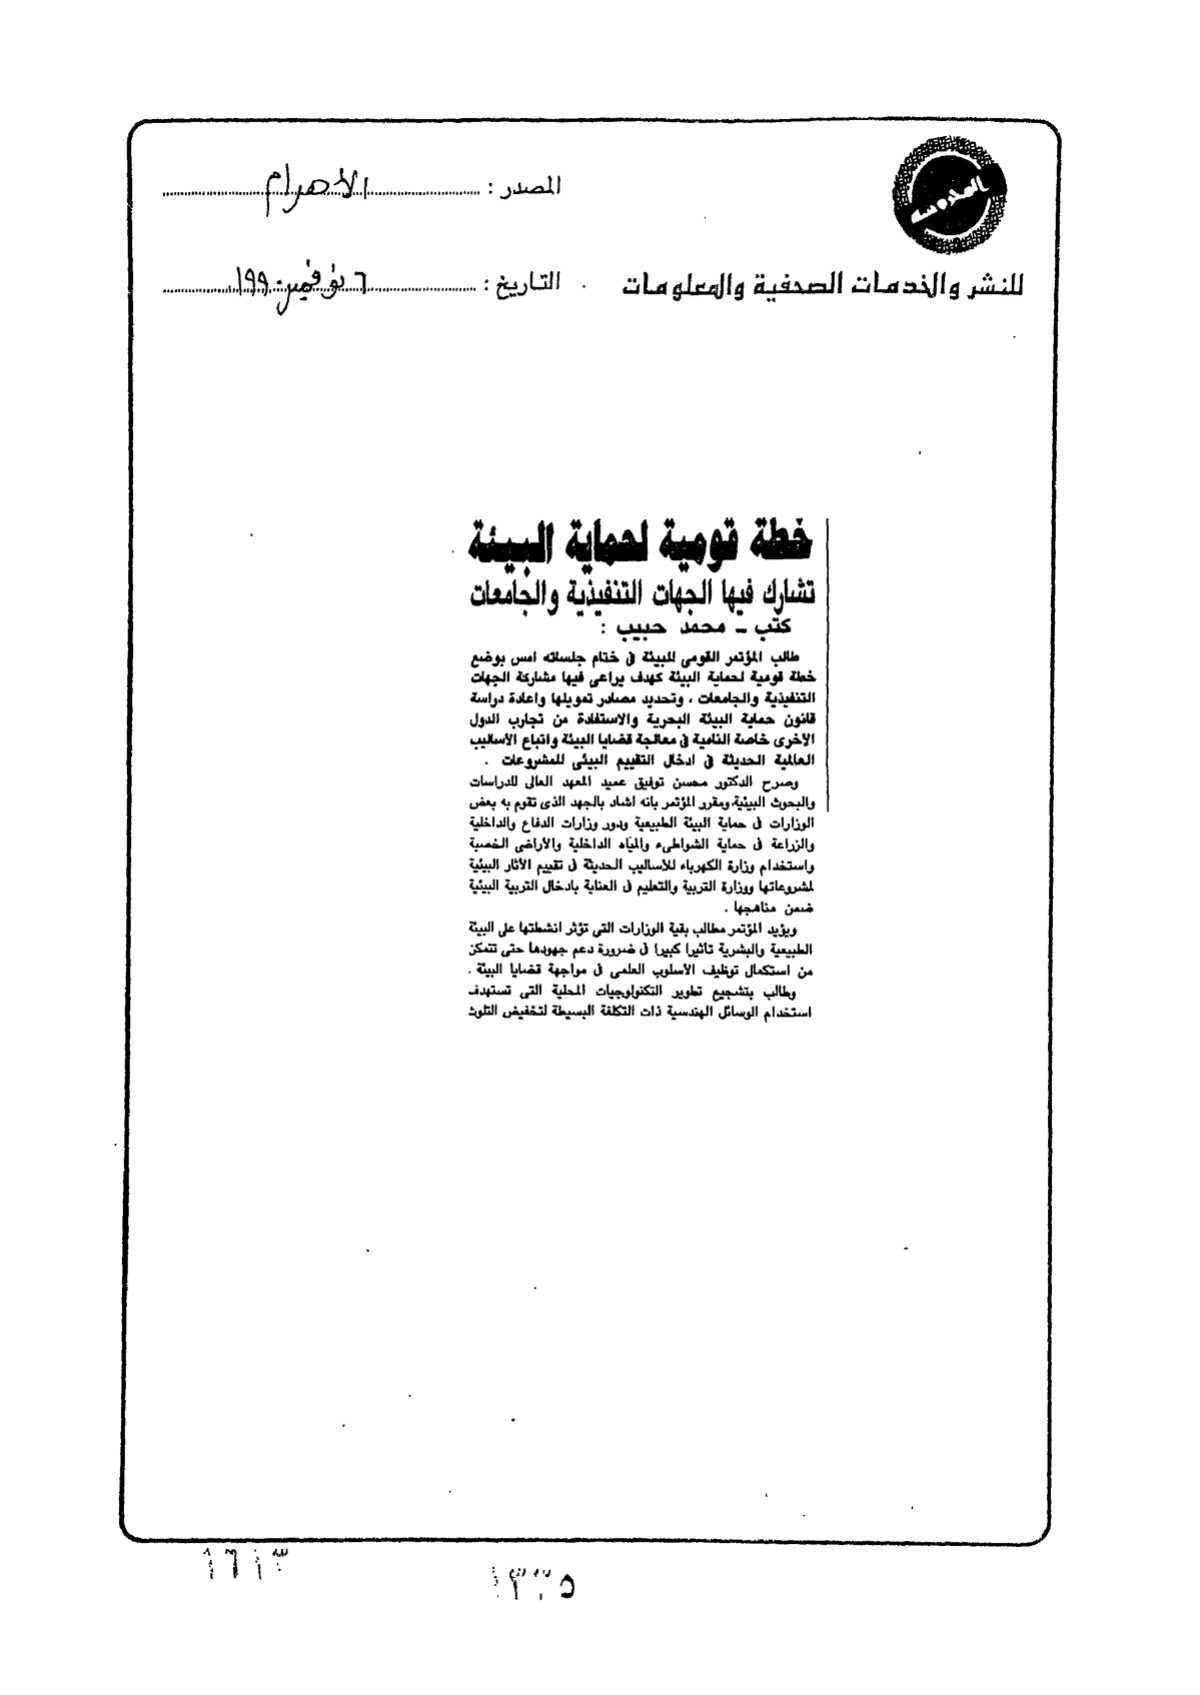 المدوسه
المصدر : الأهرام
للنشر والخدمات الصحفية والمعلومات
التاريخ : ٦ نوفمبر ١٩٩٠
خطة قومية لحماية البيئة
تشارك فيها الجهات التنفيذية والجامعات
كتب ــ محمد حبيب :
طالب المؤتمر القومى للبيئة فى ختام جلساته امس بوضع
خطة قومية لحماية البيئة كهدف يراعى فيها مشاركة الجهات
التنفيذية والجامعات ، وتحديد مصادر تمويلها واعادة دراسة
قانون حماية البيئة البحرية والاستفادة من تجارب الدول
الاخرى خاصة النامية فى معالجة قضايا البيئة واتباع الاساليب
العالمية الحديثة فى ادخال التقييم البيئى للمشروعات .
وصرح الدكتور محسن توفيق عميد المعهد العالى للدراسات
والبحوث البيئية ومقرر المؤتمر بانه اشاد بالجهد الذى تقوم به بعض
الوزارات فى حماية البيئة الطبيعية ودور وزارات الدفاع والداخلية
والزراعة فى حماية الشواطىء والمياه الداخلية والأراضى الخصبة
واستخدام وزارة الكهرباء للأساليب الحديثة فى تقييم الآثار البيئية
لمشروعاتها ووزارة التربية والتعليم فى العناية بادخال التربية البيئية
ضمن مناهجها .
ويؤيد المؤتمر مطالب بقية الوزارات التى تؤثر انشطتها على البيئة
الطبيعية والبشرية تاثيرا كبيرا فى ضرورة دعم جهودها حتى تتمكن
من استكمال توظيف الأسلوب العلمى فى مواجهة قضايا البيئة .
وطالب بتشجيع تطوير التكنولوجيات المحلية التى تستهدف
استخدام الوسائل الهندسية ذات التكلفة البسيطة لتخفيض التلوث
١٦١٣
١٣٣٥